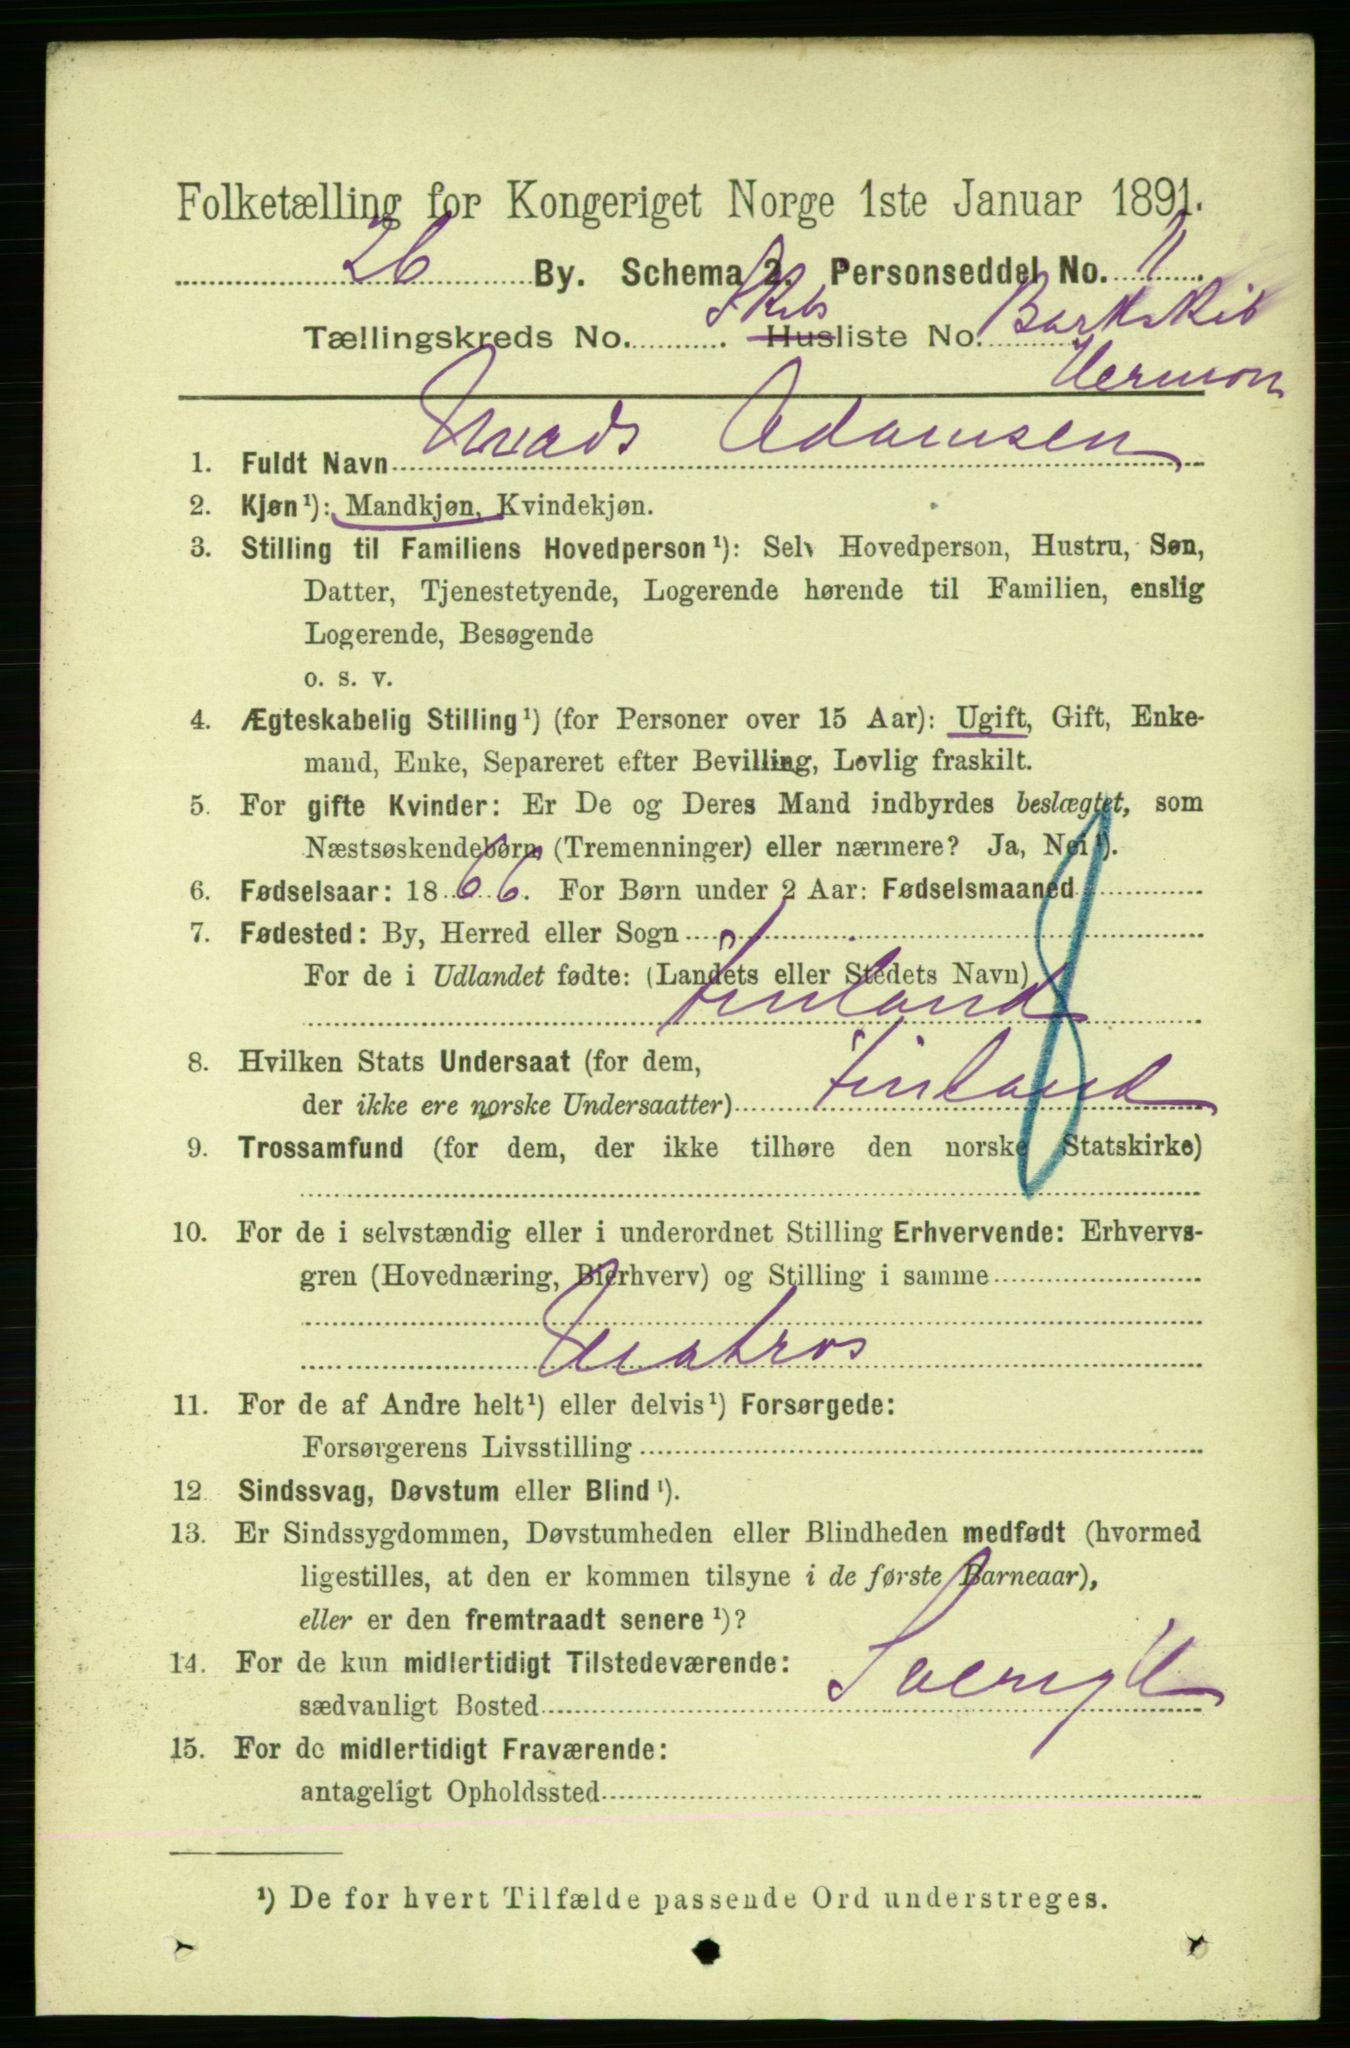 Folketælling for Kongeriget Norge 1ste Januar 1891.
26 By. Schema 2. Personseddel No. 11.
Tællingskreds No. . Skibs Husliste No. Barkskib
Hermon
1. Fuldt Navn Mads Adamsen
2. Kjøn¹): Mandkjøn, Kvindekjøn.
3. Stilling til Familiens Hovedperson¹): Selv Hovedperson, Hustru, Søn,
Datter, Tjenestetyende, Logerende hørende til Familien, enslig
Logerende, Besøgende
o. s. v.
4. Ægteskabelig Stilling¹) (for Personer over 15 Aar): Ugift, Gift, Enke-
mand, Enke, Separeret efter Bevilling, Lovlig fraskilt.
5. For gifte Kvinder: Er De og Deres Mand indbyrdes beslægtet, som
Næstsøskendebørn (Tremenninger) eller nærmere? Ja, Nei¹).
6. Fødselsaar: 1866. For Børn under 2 Aar: Fødselsmaaned
7. Fødested: By, Herred eller Sogn
For de i Udlandet fødte: (Landets eller Stedets Navn)
Finland
8. Hvilken Stats Undersaat (for dem,
der ikke ere norske Undersaatter) Finland
9. Trossamfund (for dem, der ikke tilhøre den norske Statskirke)
10. For de i selvstændig eller i underordnet Stilling Erhvervende: Erhvervs-
gren (Hovednæring, Bierhverv) og Stilling i samme
Matros
11. For de af Andre helt¹) eller delvis¹) Forsørgede:
Forsørgerens Livsstilling
12. Sindssvag, Døvstum eller Blind¹).
13. Er Sindssygdommen, Døvstumheden eller Blindheden medfødt (hvormed
ligestilles, at den er kommen tilsyne i de første Barneaar),
eller er den fremtraadt senere¹)?
14. For de kun midlertidigt Tilstedeværende:
sædvanligt Bosted
15. For de midlertidigt Fraværende:
antageligt Opholdssted
¹) De for hvert Tilfælde passende Ord understreges.